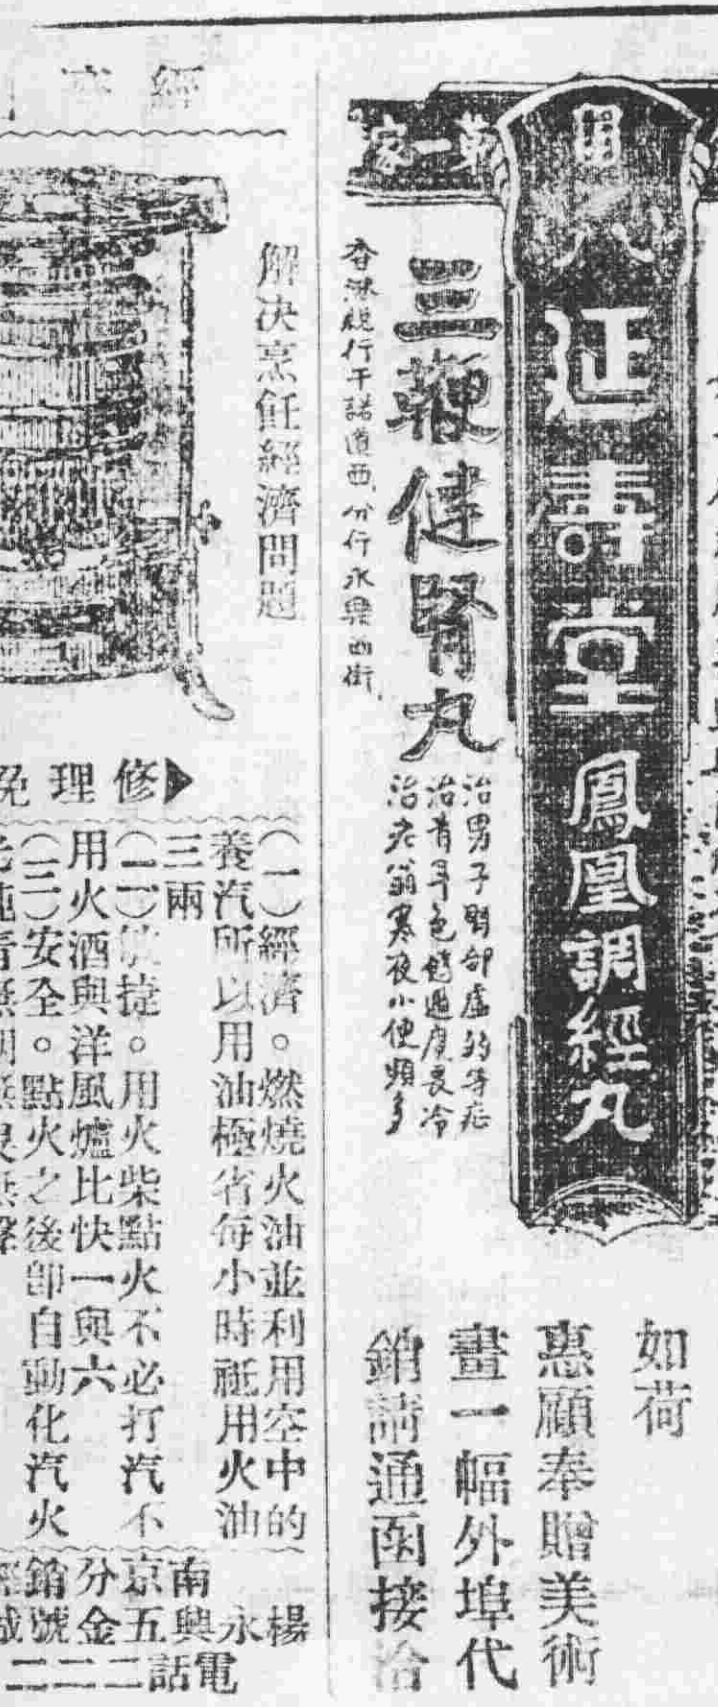 第一家
延壽堂
鳳凰調經丸
三鞭健腎丸
治男子腎部虛弱等症
治青年色慾過度畏冷
治老翁寒夜小便頻多
香港總行干諾道西分行永樂西街
如荷
惠顧奉贈美術
畫一幅外埠代
銷請通函接洽
解决烹飪經濟問題
修理免
（一）經濟。燃燒火油並利用空中的
養汽所以用油極省每小時祗用火油
三兩
（二）捷。用火柴點火不必打汽不
用火酒與洋風爐比快一與六
（三）安全。點火之後卽自動化汽火
楊永興
南京
電話
分銷
五金號